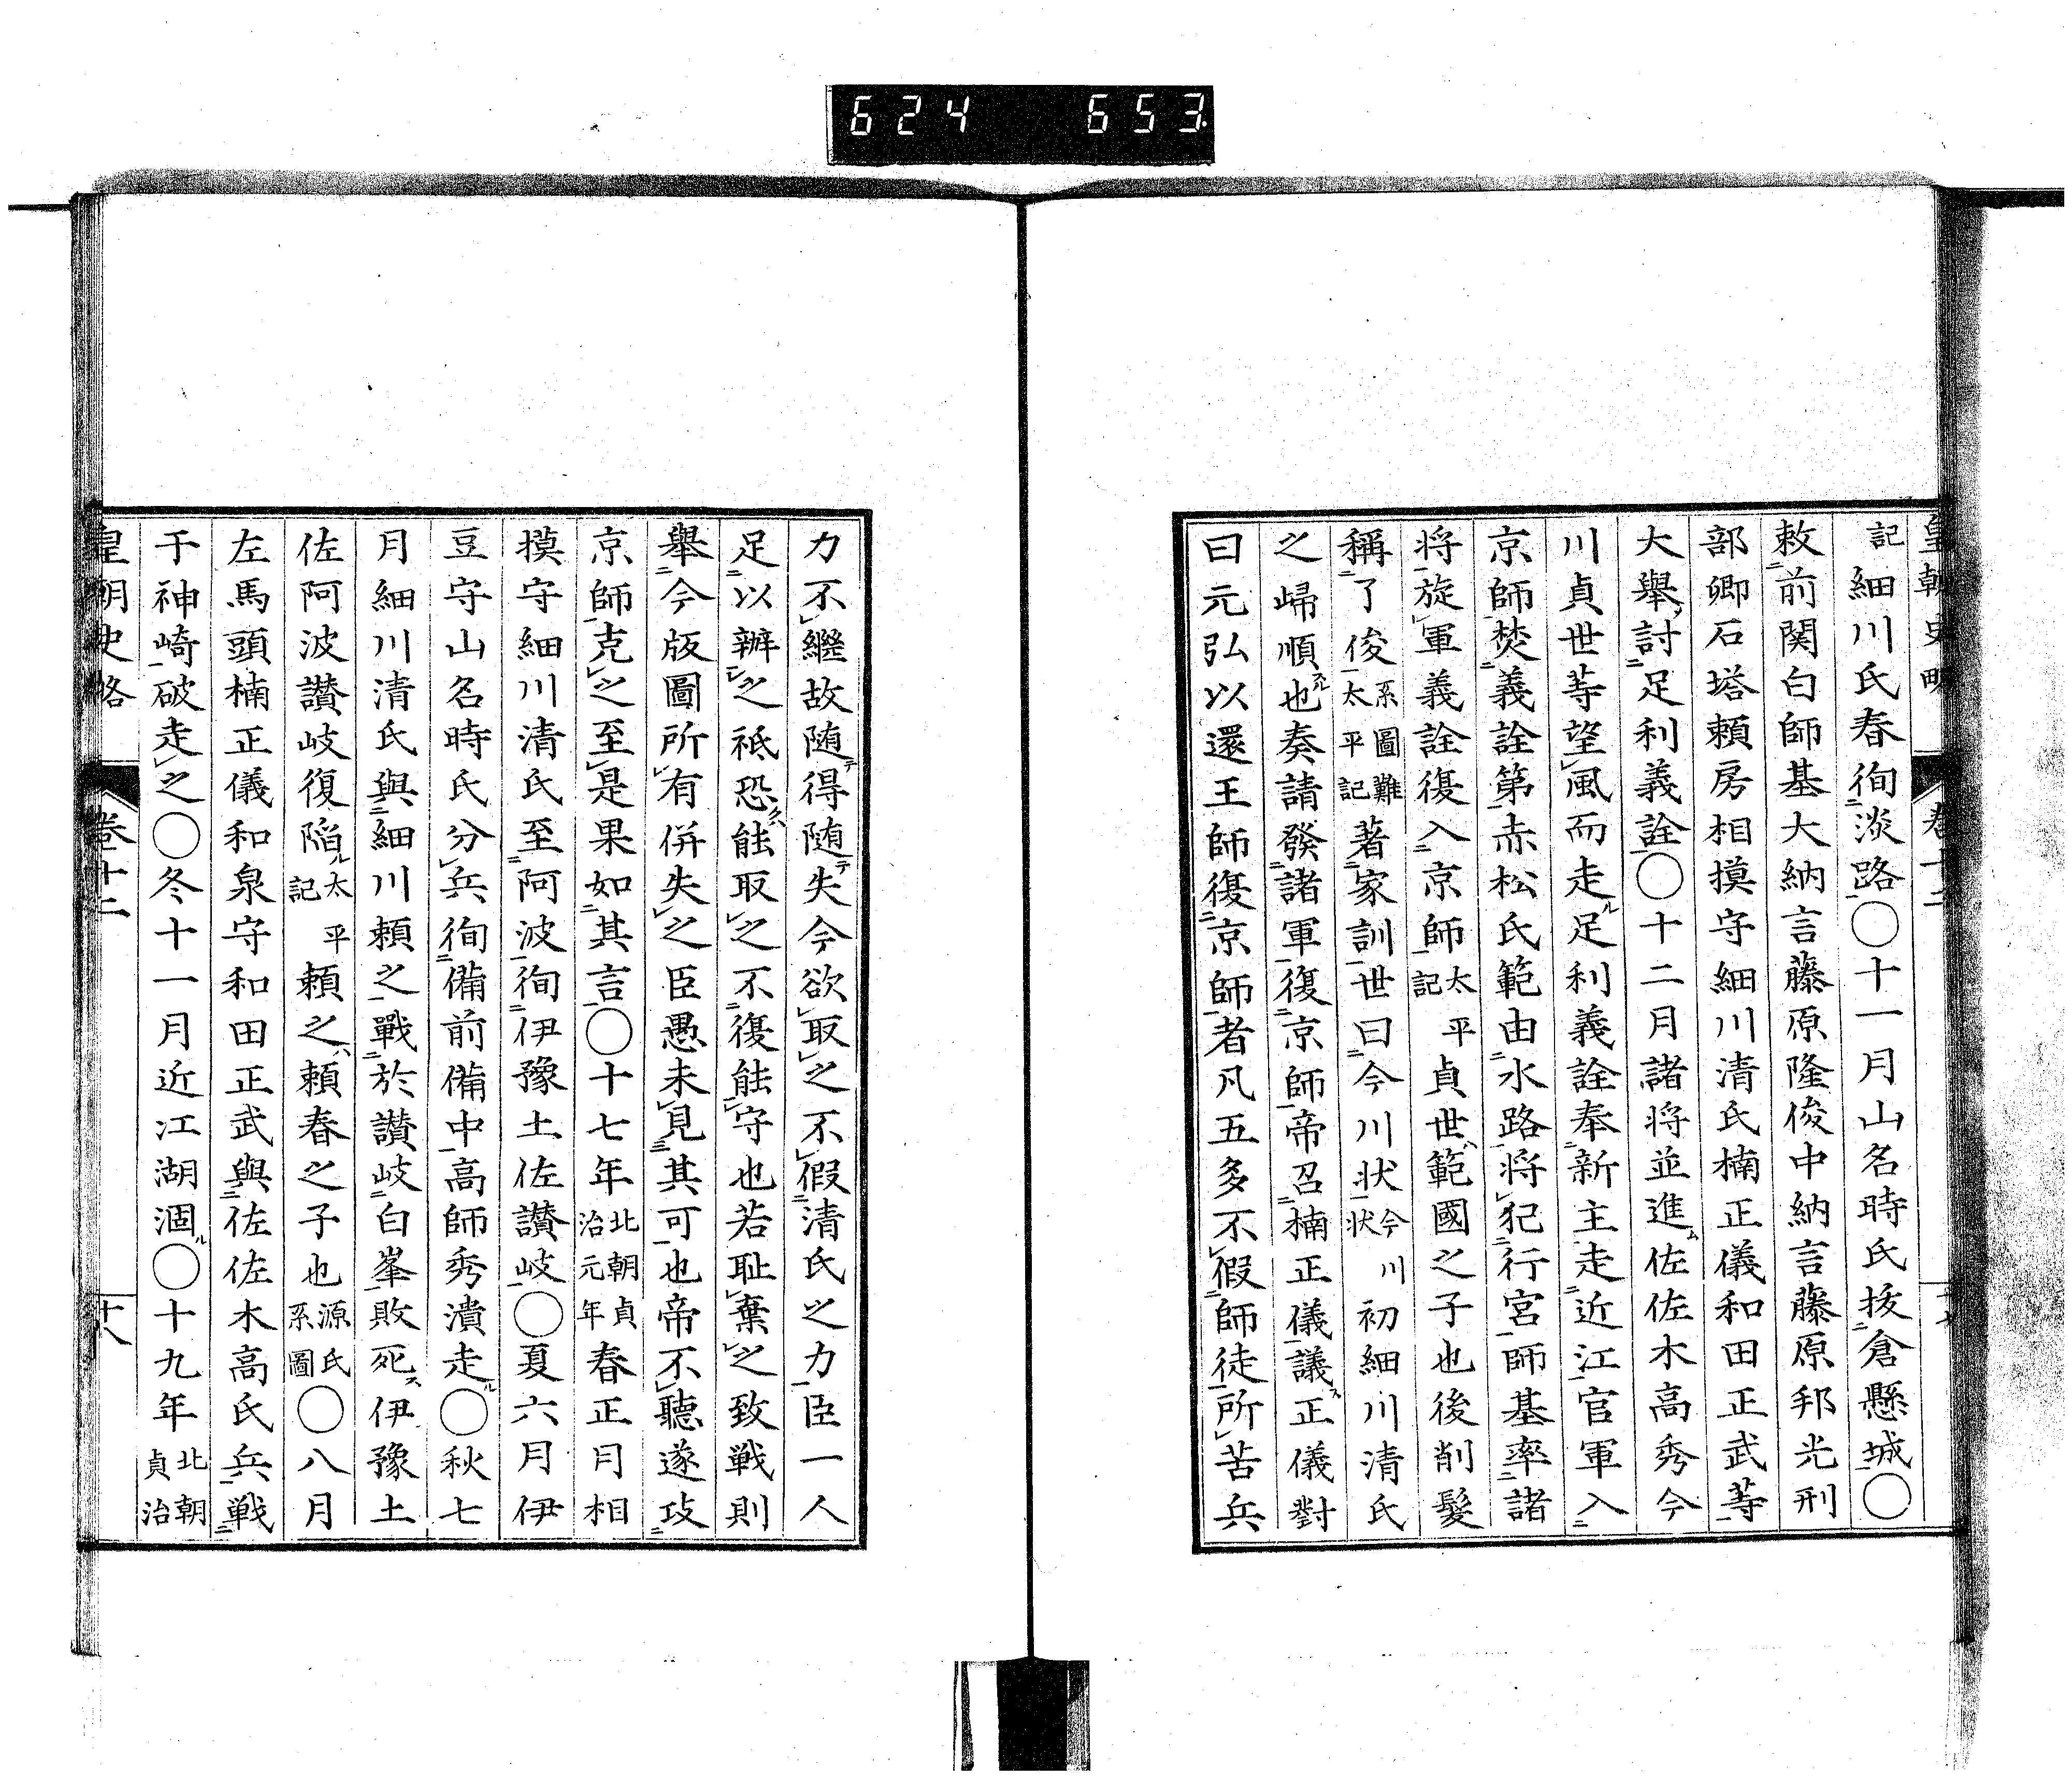 624 653
皇朝史略 卷十二 十七
記細川氏春徇淡路〇十一月山名時氏拔倉懸城〇
敕前関白師基大納言藤原隆俊中納言藤原邦光刑
部卿石塔頼房相摸守細川清氏楠正儀和田正武等
大舉討足利義詮〇十二月諸将並進佐佐木高秀今
川貞世等望風而走足利義詮奉新主走近江官軍入
京師焚義詮第赤松氏範由水路将犯行宮師基率諸
将旋軍義詮復入京師太平記貞世範國之子也後削髪
稱了俊系圖難太平記著家訓世曰今川状今川状初細川清氏
之歸順也奏請發諸軍復京師帝召楠正儀議正儀對
曰元弘以還王師復京師者凡五多不假師徒所苦兵
力不繼故随得随失今欲取之不假清氏之力臣一人
足以辦之祗恐能取之不復能守也若耻棄之致戦則
舉今版圖所有併失之臣愚未見其可也帝不聽遂攻
京師克之至是果如其言〇十七年北朝貞治元年春正月相
摸守細川清氏至阿波徇伊豫土佐讃岐〇夏六月伊
豆守山名時氏分兵徇備前備中高師秀潰走〇秋七
月細川清氏與細川頼之戰於讃岐白峯敗死伊豫土
佐阿波讃岐復陥太平記頼之頼春之子也源氏系圖〇八月
左馬頭楠正儀和泉守和田正武與佐佐木高氏兵戦
于神崎破走之〇冬十一月近江湖涸〇十九年北朝貞治
皇朝史略 卷十二 十八